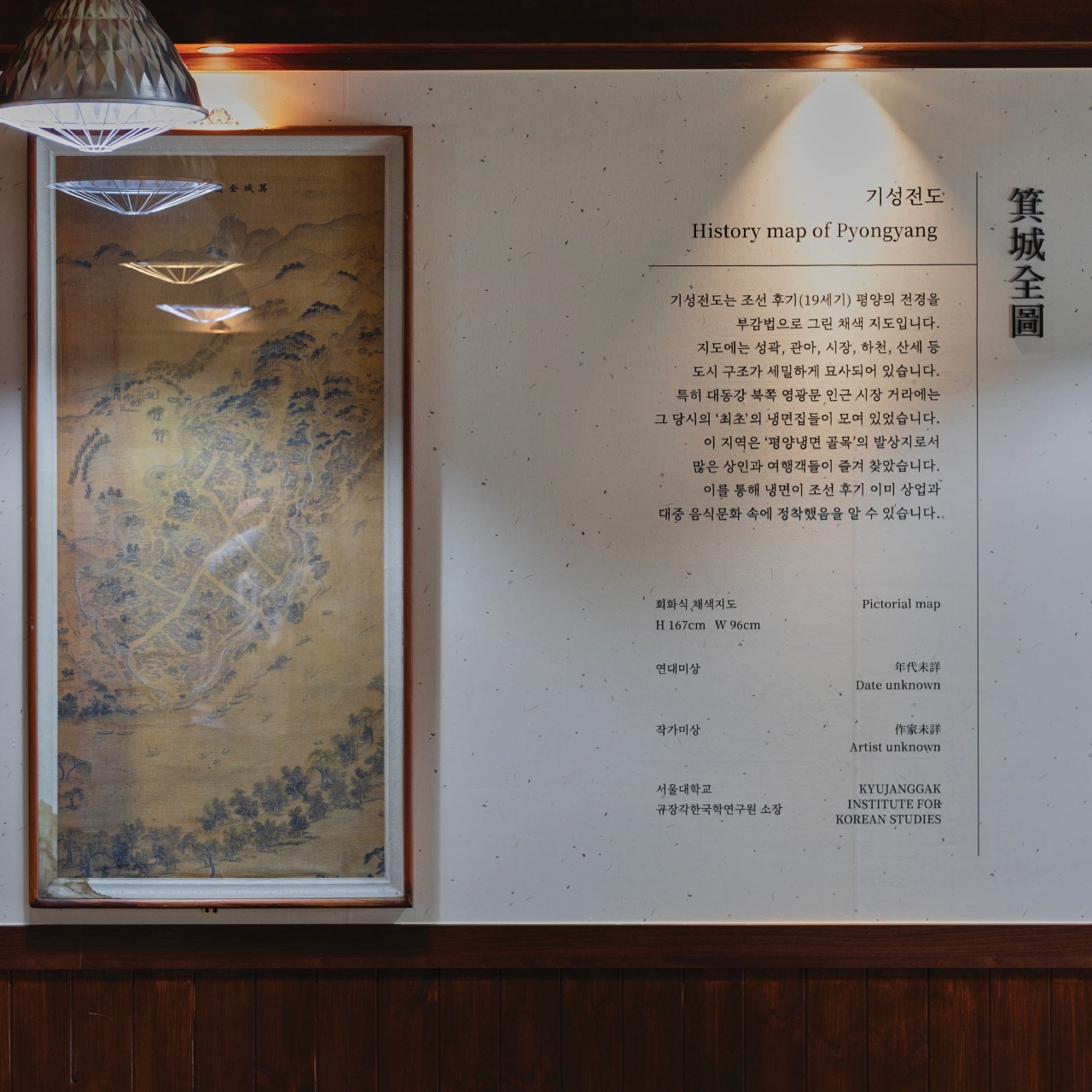 기성전도
History map of Pyongyang
기성전도는 조선 후기(19세기) 평양의 전경을
부감법으로 그린 채색 지도입니다.
지도에는 성곽, 관아, 시장, 하천, 산세 등
도시 구조가 세밀하게 묘사되어 있습니다.
특히 대동강 북쪽 영광문 인근 시장 거라에는
그 당시의 ‘최초’의 냉면집들이 모여 있었습니다.
이 지역은 ‘평양냉면 골목’의 발상지로서
많은 상인과 여행객들이 즐겨 찾았습니다.
이를 통해 냉면이 조선 후기 이미 상업과
대중 음식문화 속에 정착했음을 알 수 있습니다.
회화식 채색지도 Pictorial map
H 167cm W 96cm
연대미상 年代未詳
Date unknown
작가미상 作家未詳
Artist unknown
서울대학교 KYUJANGGAK
규장각한국학연구원 소장 INSTITUTE FOR
KOREAN STUDIES
箕城全圖